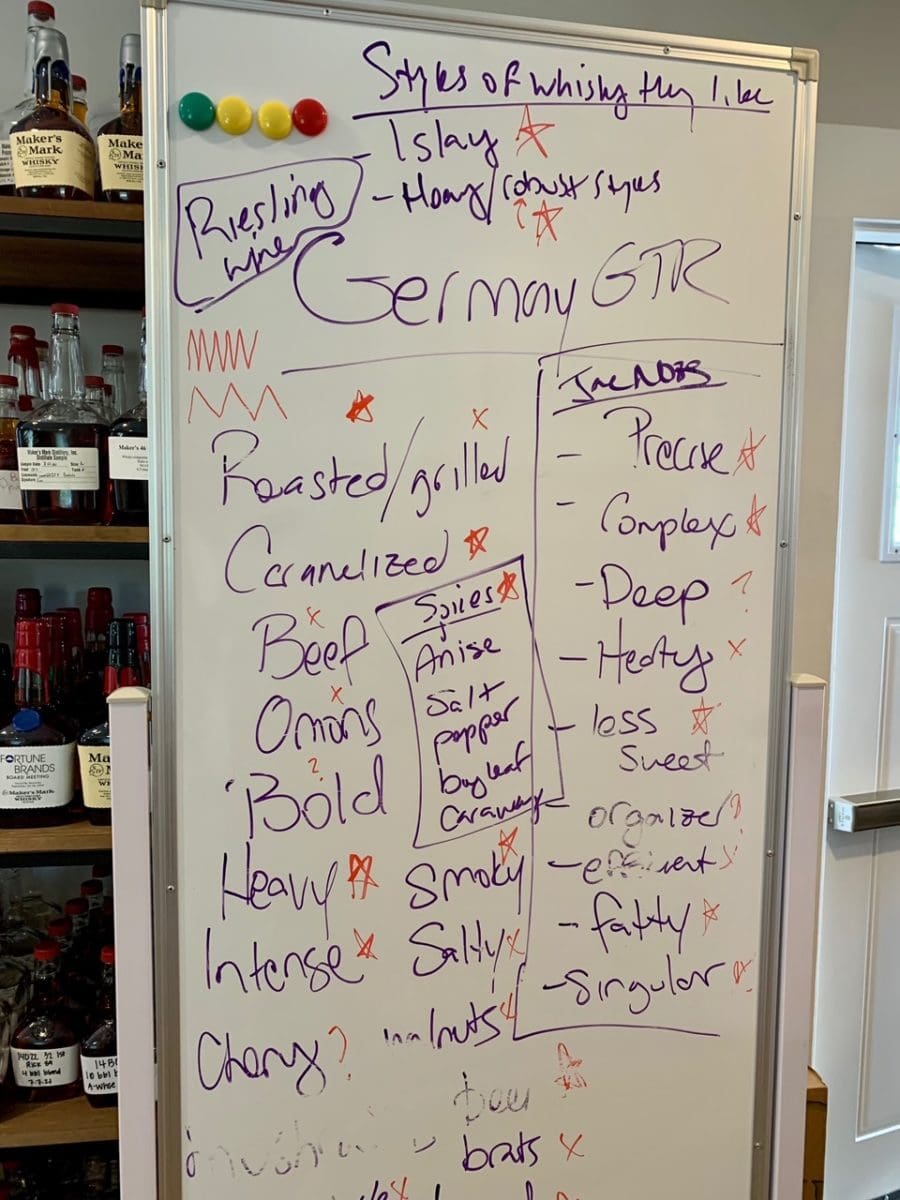 Styles of whisky they like
- Islay
- Heavy/robust styles
Riesling
wine
Germany GTR
Roasted/grilled
Caramelized
Beef
Onions
Bold
Heavy
Intense
Cherry?
Spices
Anise
Salt
pepper
bay leaf
Caraway
Smoky
Salty
walnuts
beer
brats
- Precise
- Complex
- Deep ?
- Heaty
- less
Sweet
- orgaized ?
- efficient
- fatty
- Singular
Maker's
Mark
WHISKY
Maker's Mark Distillery, Inc.
Distillate Sample
Maker's 46
FORTUNE
BRANDS
BOARD MEETING
Maker's Mark
WHISKY
4 bbl blend
7.7.22